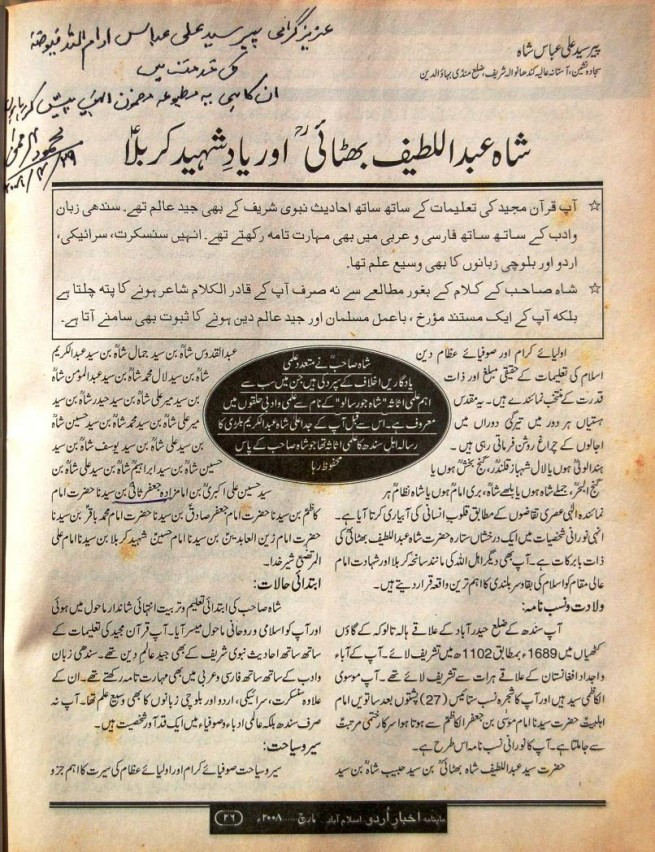 عزیز گرامی پیر سید علی عباس ادام اللہ فیوضہٗ
کی خدمت میں
ان کا ہی یہ مطبوعہ مضمون انہیں پیش کر رہا ہوں
پیر سید علی عباس شاہ
سجادہ نشین، آستانہ عالیہ کندھانوالہ شریف، ضلع منڈی بہاؤالدین
شاہ عبداللطیف بھٹائیؒ اور یادِ شہیدِ کربلاؑ
☆ آپ قرآن مجید کی تعلیمات کے ساتھ ساتھ احادیث نبوی شریف کے بھی جید عالم تھے۔ سندھی زبان
وادب کے ساتھ ساتھ فارسی و عربی میں بھی مہارت تامہ رکھتے تھے۔ انہیں سنسکرت، سرائیکی،
اردو اور بلوچی زبانوں کا بھی وسیع علم تھا۔
☆ شاہ صاحب کے کلام کے بغور مطالعے سے نہ صرف آپ کے قادر الکلام شاعر ہونے کا پتہ چلتا ہے
بلکہ آپ کے ایک مستند مؤرخ، باعمل مسلمان اور جید عالم دین ہونے کا ثبوت بھی سامنے آتا ہے۔
اولیائے کرام اور صوفیائے عظام دین
اسلام کی تعلیمات کے حقیقی مبلغ اور ذات
قدرت کے منتخب نمائندے ہیں۔ یہ مقدس
ہستیاں ہر دور میں تیرگی دوراں میں
اجالوں کے چراغ روشن فرماتی رہی ہیں۔
ہندالولیؒ ہوں یا لال شہباز قلندرؒ، گنج بخشؒ ہوں یا
گنج البحرؒ، جملے شاہ ہوں یا بلھے شاہؒ، بری امامؒ ہوں یا شاہ نظامؒ ہر
نمائندہ الٰہی عصری تقاضوں کے مطابق قلوب انسانی کی آبیاری کرتا آیا ہے۔
انہی نورانی شخصیات میں ایک درخشاں ستارہ حضرت شاہ عبداللطیف بھٹائیؒ کی
ذات بابرکات ہے۔ آپ بھی دیگر اہل اللہ کی مانند سانحہ کربلا اور شہادت امام
عالی مقام کو اسلام کی بقا و سربلندی کا اہم ترین واقعہ قرار دیتے ہیں۔
ولادت و نسب نامہ:
آپ سندھ کے ضلع حیدرآباد کے علاقے ہالہ تالوکہ کے گاؤں
کتھیاں میں 1689ء بمطابق 1102ھ میں تشریف لائے۔ آپ کے آباء
واجداد افغانستان کے علاقے ہرات سے تشریف لائے تھے۔ آپ موسوی
الکاظمی سید ہیں اور آپ کا شجرہ نسب ستائیس (27) پشتوں بعد ساتویں امام
اہلبیت حضرت سیدنا امام موسیٰ بن جعفر الکاظمؑ سے ہوتا ہوا سرکار ختمی مرتبت
سے جاملتا ہے۔ آپ کا نورانی نسب نامہ اس طرح ہے۔
حضرت سید عبداللطیف شاہ بھٹائیؒ بن سید حبیب شاہؒ بن سید
شاہ صاحبؒ نے متعدد علمی
یادگاریں اخلاف کے سپرد کی ہیں جن میں سب سے
اہم علمی اثاثہ "شاہ جو رسالو" کے نام سے علمی وادبی حلقوں میں
معروف ہے۔ اس سے قبل آپ کے جد اعلیٰ شاہ عبدالکریم بلڑی کا
رسالہ اہل سندھ کا علمی اثاثہ تھا جو شاہ صاحب کے پاس
محفوظ رہا
عبدالقدوس شاہؒ بن سید جمال شاہؒ بن سید عبدالکریم
شاہؒ بن سید لال محمد شاہؒ بن سید عبدالمؤمن شاہؒ
بن سید میر علی شاہؒ بن سید حیدر شاہؒ بن سید
میر علی شاہؒ بن سید محمد شاہؒ بن سید حسین شاہؒ
بن سید علی شاہؒ بن سید یوسف شاہؒ بن سید
حسین شاہؒ بن سید ابراہیم شاہؒ بن سید علی شاہؒ بن
سید حسین علی اکبریؒ بن امامزادہ جعفر ثانیؒ بن سیدنا حضرت امام
کاظمؑ بن سیدنا حضرت امام جعفر صادقؑ بن سیدنا حضرت امام محمد باقرؑ بن سیدنا
حضرت امام زین العابدینؑ بن سیدنا امام حسینؑ شہید کربلا بن سیدنا امام علی
المرتضیٰؑ شیر خدا۔
ابتدائی حالات:
شاہ صاحب کی ابتدائی تعلیم و تربیت انتہائی شاندار ماحول میں ہوئی
اور آپ کو اسلامی و روحانی ماحول میسر آیا۔ آپ قرآن مجید کی تعلیمات کے
ساتھ ساتھ احادیث نبوی شریف کے بھی جید عالم دین تھے۔ سندھی زبان
وادب کے ساتھ ساتھ فارسی و عربی میں بھی مہارت تامہ رکھتے تھے۔ ان کے
علاوہ سنسکرت، سرائیکی، اردو اور بلوچی زبانوں کا بھی وسیع علم تھا۔ آپ نہ
صرف سندھ بلکہ عالمی ادباء و صوفیاء میں ایک قدآور شخصیت ہیں۔
سیر و سیاحت:
سیر و سیاحت صوفیائے کرام اور اولیائے عظام کی سیرت کا اہم جزو
ماہنامہ اخبارِ اُردو، اسلام آباد ۔۔۔ مارچ ۔۔۔۔ ۲۰۰۸ء (۲۶)